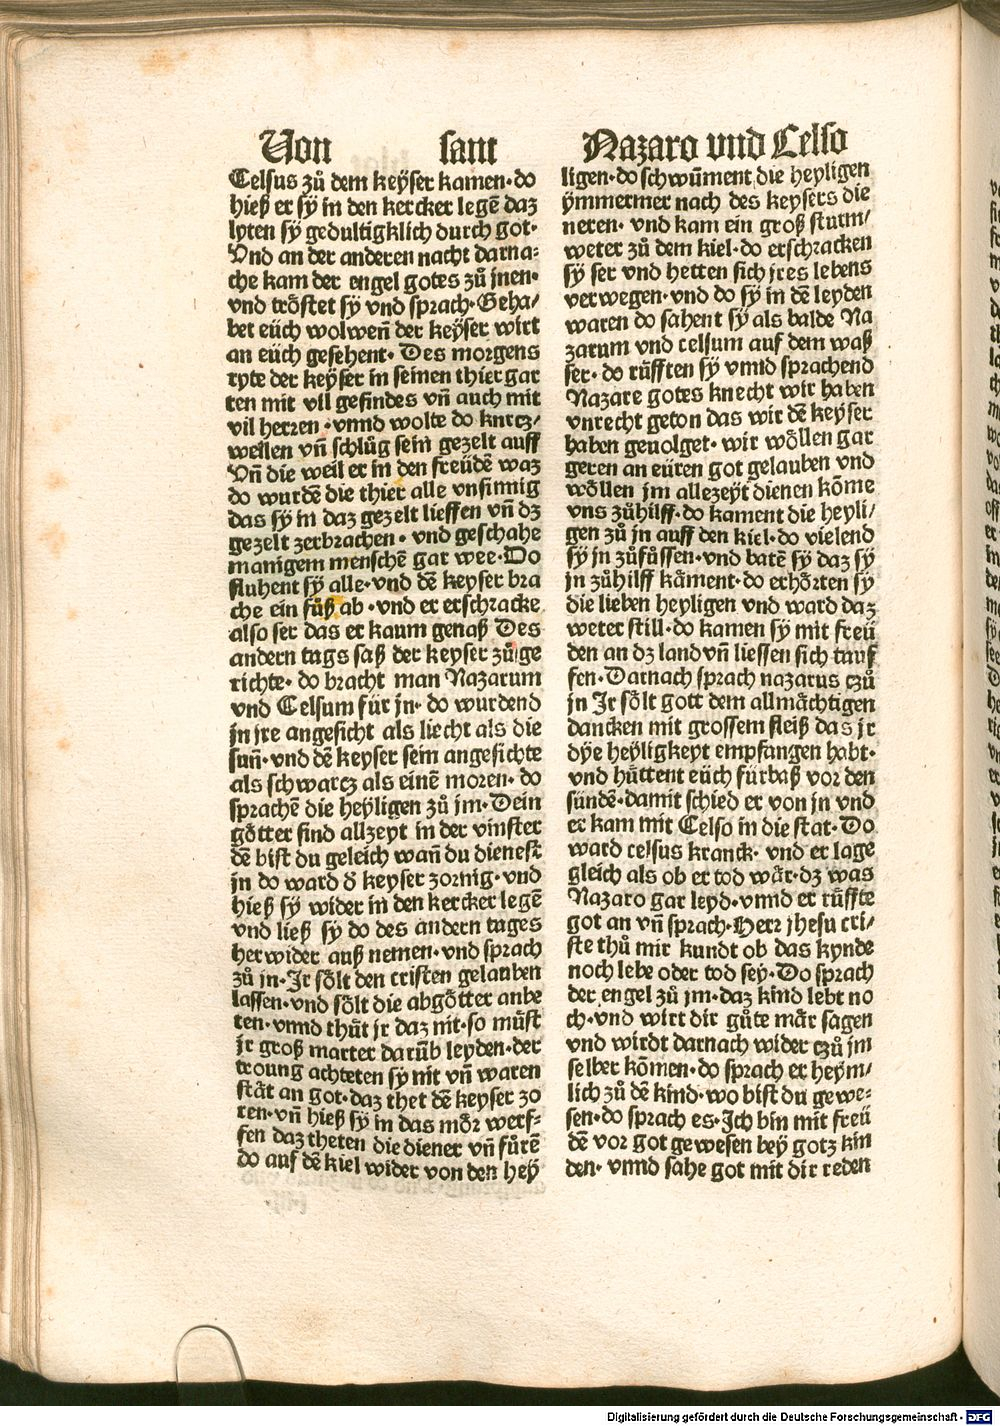 Von sant
Celsus zů dem keÿser kamen·do
hieß er sÿ in den kercker legē daz
lyten sÿ gedultigklich durch got·
Vnd an der anderen nacht darna⸗
che kam der engel gotes zů jnen·
vnd trȫstet sÿ vnd sprach·Geha/
bet eüch wolwen̄ der keÿser wirt
an eüch gesehent· Des morgens
ryte der keÿser in seinen thier gar
ten mit vil gefindes vn̄ auch mit
vil herren·vnnd wolte do kurcz/
weilen vn̄ schlůg sein gezelt auff
Vn̄ die weil er in den freüdē waz
do wurdē die thier alle vnsinnig
das sÿ in daz gezelt lieffen vn̄ dz
gezelt zerbrachen· vnd geschahe
manigem menschē gar wee·Do
fluhent sÿ alle·vnd dē keyser bra
che ein fůß ab·vnd er erschracke
also ser das er kaum genaß Des
andern tags saß der keyser zů ge
richte·do bracht man Nazarum
vnd Celsum für jn·do wurdend
jn jre angesicht als liecht als die
sun̄·vnd dē keyser sein angesichte
als schwarcz als einē moren·do
sprachē die heÿligen zů jm·Dein
götter sind allzeyt in der vinster
dē bist du geleich wan̄ du dienest
jn do ward ð keyser zornig·vnd
hieß sÿ wider in den kercker legē
vnd ließ sÿ do des andern tages
herwider auß nemen·vnd sprach
zů jn·Ir sölt den cristen gelauben
lassen·vnd sölt die abgötter anbe
ten·vnnd thůt jr daz nit·so můst
jr groß marter darūb leyden·der
troung achteten sy nit vn̄ waren
stät an got·daz thet dē keyser zo
ren·vn̄ hieß sÿ in das mör werf⸗
fen daz theten die diener vn̄ fůrē
do auf dē kiel wider von den heÿ
Nazaro vnd Celso
ligen·do schwům̄ent die heyligen
ÿmmermer nach des keysers die
neren· vnd kam ein groß sturm/
weter zů dem kiel·do erschracken
sÿ ser vnd hetten sich jres lebens
verwegen·vnd do sÿ in dē leyden
waren do sahent sÿ als balde Na
zarum vnd celsum auf dem waß
ser·do růfften sÿ vnnd sprachend
Nazare gotes knecht wir haben
vnrecht geton das wir dē keyser
haben geuolget·wir wöllen gar
geren an eüren got gelauben vnd
wöllen jm allezeÿt dienen kōme
vns zůhilff·do kament die heyli/
gen zů jn auff den kiel·do vielend
sÿ jn zůfůssen·vnd batē sÿ daz sÿ
jn zůhilff kåment·do erhörten sÿ
die lieben heyligen vnd ward daz
weter still·do kamen sÿ mit freü
den an dz land vn̄ liessen sich tauf
fen·Darnach sprach nazarus czů
jn Ir sölt gott dem allmåchtigen
dancken mit grossem fleiß das jr
dÿe heÿligkeyt empfangen habt·
vnd hüttent eüch fürbaß vor den
sündē·damit schied er von jn vnd
er kam mit Celso in die stat·Do
ward celsus kranck· vnd er lage
gleich als ob er tod wår·dz was
Nazaro gar leyd·vnnd er růffte
got an vn̄ sprach·Herr jhesu cri/
ste thů mir kundt ob das kynde
noch lebe oder tod seÿ·Do sprach
der engel zů jm·daz kind lebt no
ch·vnd wirt dir gůte mår sagen
vnd wirdt darnach wider czů jm
selber kōmen·do sprach er heym/
lich zů dē kind·wo bist du gewe⸗
sen·do sprach es·Ich bin mit freü
dē vor got gewesen beÿ gotz kin
den·vnnd sahe got mit dir reden
Digitalisierung gefördert durch die Deutsche Forschungsgemeinschaft - DFG